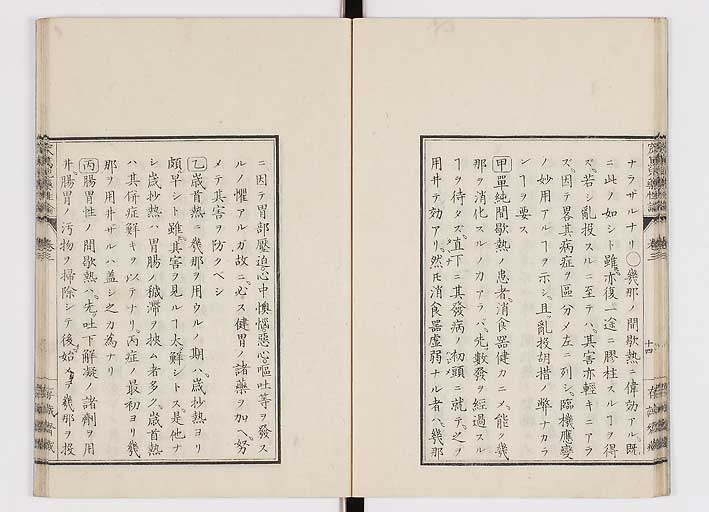 ナラザルナリ〇幾那ノ間歇熱ニ偉効アル。既
ニ此ノ如シト雖。亦復一途ニ膠柱スルヿヲ得
ズ。若シ亂投スルニ至テハ。其害亦輕キニアラ
ズ因テ畧其病症ヲ區分メ左ニ列シ。臨機應變
ノ妙用アルヿヲ示シ。且亂投胡措ノ弊ナカラ
ンヿヲ要ス
甲單純間歇熱ノ患者。消食器健カニメ。能ク幾
那ヲ消化スルノ力アラバ。先數發ヲ經過スル
ヿヲ待タズ。直下ニ其發病ノ初頭ニ就テ。之ヲ
用井テ効アリ。然氏消食器虚弱ナル者ハ。幾那
十四
ニ因テ胃部壓迫。心中懊憹惡心。嘔吐等ヲ發ス
ルノ懼アルガ故ニ。必ス健胃ノ諸藥ヲ加ヘ。努
メテ其害ヲ防クベシ
乙歳首熱ニ幾那ヲ用ウルノ期ハ。歳抄熱ヨリ
頗早シト雖。其害ヲ見ルヿ太鮮シトス。是他ナ
シ歳抄熱ハ胃腸ノ穢滯ヲ挾ム者多ク。歳首熱
ハ其併症鮮キヲ以テナリ。丙症ノ最初ヨリ幾
那ヲ用井ザルハ。盖シ之カ為ナリ
丙腸胃性ノ間歇熱ハ。先吐下解凝ノ諸劑ヲ用
井。腸胃ノ汚物ヲ掃除シテ後。始メテ幾那ヲ投
卷三